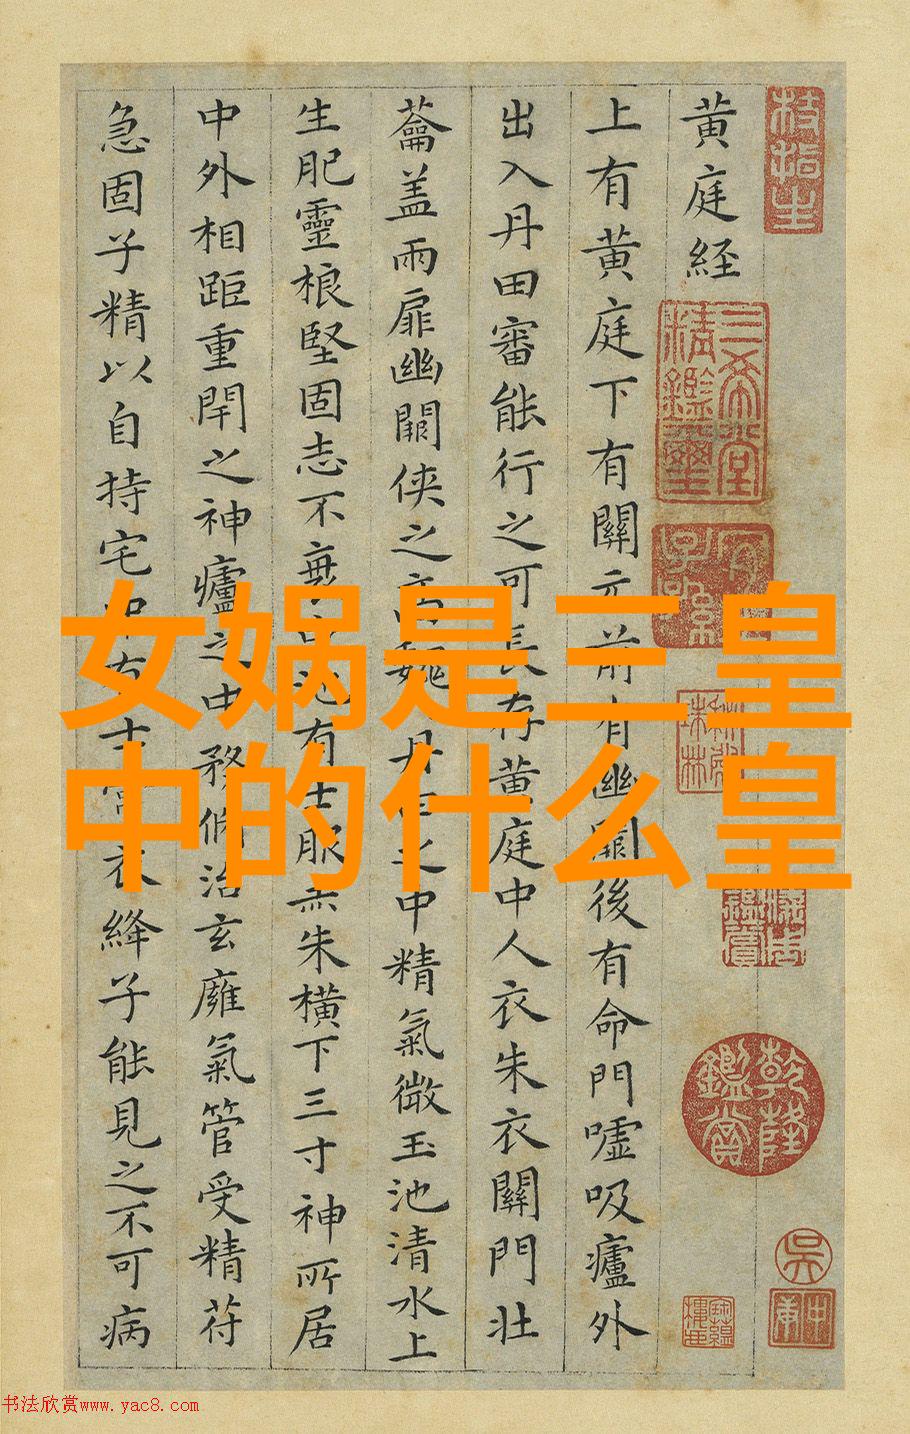 女娲是三皇
中的什么皇
黄庭経
上有黄庭下有關元前有幽闕後有命門噓吸廬外
出入丹田審能行之可長存黄庭中人衣朱衣關門壯
蘥盖兩扉幽闕俠之高巍丹田之中精氣微玉池清水上
生肥靈根堅固志不衰中池有士服赤朱横下三寸神所居
中外相距重閇之神廬之中務脩治玄廱氣管受精苻
急固子精以自持宅中有士常衣絳子能見之不可病
三希堂精鑑璽
宜子孫
乾隆鑑賞
吳
书法欣赏www.yac8.com